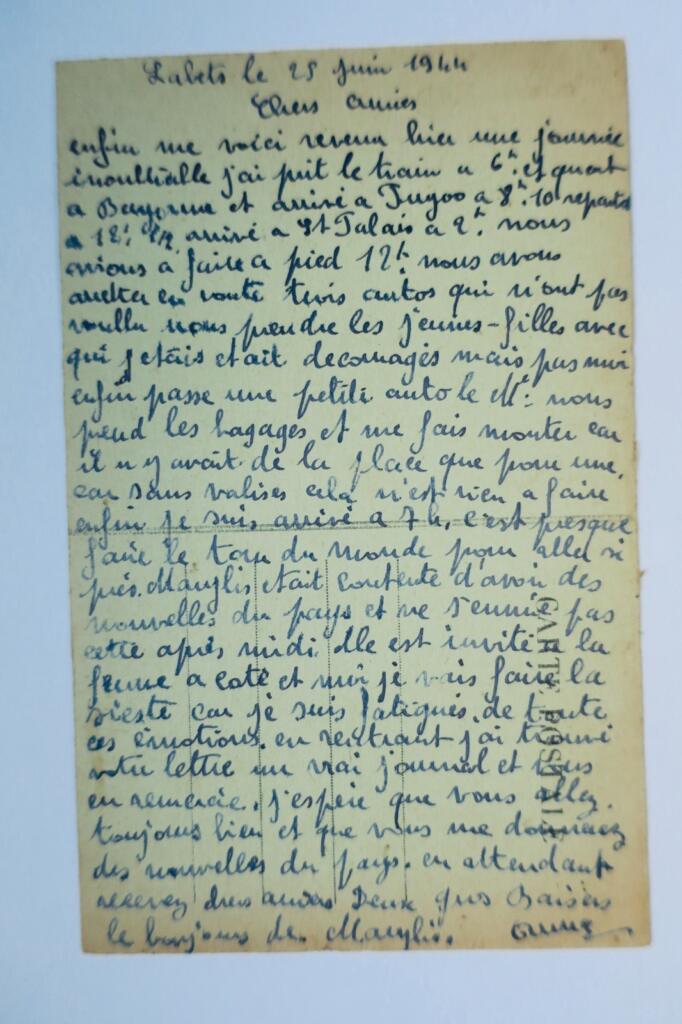 Labets le 25 juin 1944
Chers amies
enfin me voici revenu hier une journée
inoubliable j'ai prit le train a 6h et quart
a Bayonne et arrivé a Puyoo a 8h.10 repartis
a 12h 1/2 arrivé a St Palais a 2h nous
avions a faire a pied 12k nous avons
arreter en route trois autos qui n'ont pas
voullu nous prendre les jeunes-filles avec
qui j'etais etait decouragés mais pas moi
enfin passe une petite auto le Mr: nous
prend les bagages et me fais monter car
il n'y avait de la place que pour une,
car sans valises cela n'est rien a faire
enfin je suis arrivé a 7h, c'est presque
faire le tour du monde pour aller si
prés. Maylis etait contente d'avoir des
nouvelles du pays et ne s'ennuie pas
cette après midi elle est invité a la
ferme a coté et moi je vais faire la
sieste car je suis fatiguès. de toute
ces émotions. en rentrant j'ai trouvé
votre lettre un vrai journal et vous
en remercie, j'espère que vous allez
toujours bien et que vous me donnerez
des nouvelles du pays. en attendant
recevez Deux gros Baisers
le bonjour de Maylis.
CARTE POSTALE